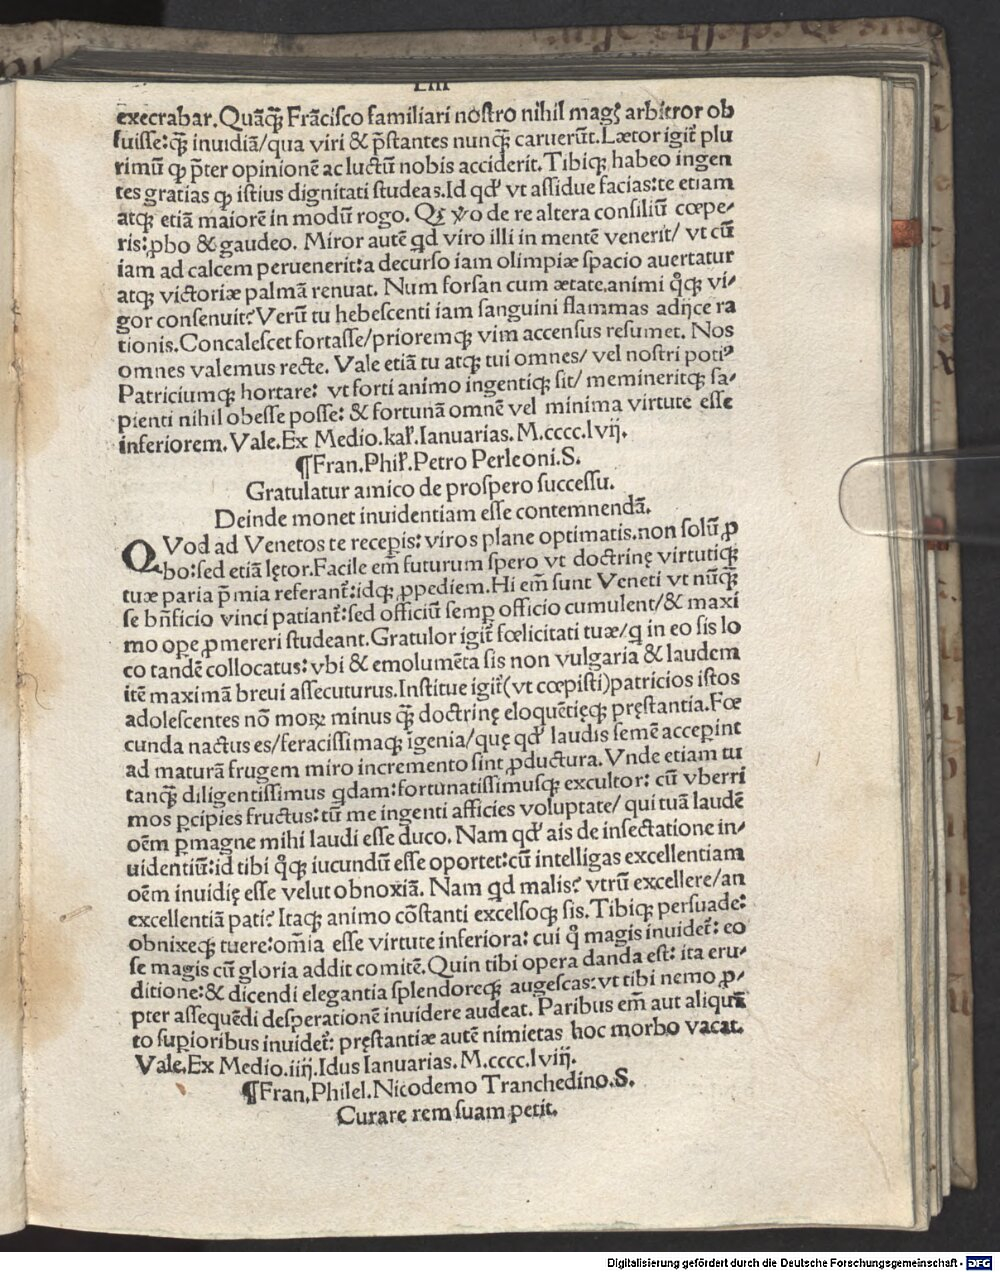 LIII
execrabar. Quãq̃ Frãcisco familiari nostro nihil magꝭ arbitror ob
fuisse: q̃ inuidiã/qua viri & p̃stantes nunq̃ caruerũt. Lætor igit̃ plu
rimũ ꝙ p̃ter opinionẽ ac luctũ nobis acciderit. Tibiqꝫ habeo ingen
tes gratias ꝙ istius dignitati studeas. Id qđ vt assidue facias: te etiam
atqꝫ etiã maiorẽ in modũ rogo. Qꝫ ỹo de re altera consiliũ cœpe⸗
ris: ꝓbo & gaudeo. Miror autẽ qd viro illi in mentẽ venerit/ vt cũ
iam ad calcem peruenerit: a decurso iam olimpiæ spacio auertatur
atqꝫ victoriæ palmã renuat. Num forsan cum ætate. animi q̊qꝫ vi⸗
gor consenuit? Verũ tu hebescenti iam sanguini flammas adijce ra
tionis. Concalescet fortasse/prioremqꝫ vim accensus resumet. Nos
omnes valemus recte. Vale etiã tu atqꝫ tui omnes/ vel nostri potiꝰ
Patriciumqꝫ hortare: vt forti animo ingentiqꝫ sit/ memineritqꝫ sa⸗
pienti nihil obesse posse: & fortunã omnẽ vel minima virtute esse
inferiorem. Vale. Ex Medio. kal̃. Ianuarias. M.cccc.lvij.
¶Fran. Phil̃. Petro Perleoni. S.
Gratulatur amico de prospero successu.
Deinde monet inuidentiam esse contemnendã.
QVod ad Venetos te recepis: viros plane optimatis. non solũ ꝓ
bo: sed etiã lętor. Facile em̃ futurum spero vt doctrinę virtutiqꝫ
tuæ paria p̃mia referant̃: idqꝫ ꝓpediem. Hi em̃ sunt Veneti vt nũq̃
se bñficio vinci patiant̃: sed officiũ semꝑ officio cumulent/& maxi
mo ope ꝓmereri studeant. Gratulor igit̃ fœlicitati tuæ/q in eo sis lo
co tandẽ collocatus: vbi & emolumẽta sis non vulgaria & laudem
itẽ maximã breui assecuturus. Institue igit̃ (vt cœpisti) patricios istos
adolescentes nõ moꝝ minus q̃ doctrinę eloquẽtięqꝫ pręstantia. Fœ
cunda nactus es/feracissimaqꝫ ĩgenia/quę qđ laudis semẽ acceꝑint
ad maturã frugem miro incremento sint ꝓductura. Vnde etiam tu
tanq̃ diligentissimus qdam: fortunatissimusqꝫ excultor: cũ vberri
mos ꝑcipies fructus: tũ me ingenti afficies voluptate/ qui tuã laudẽ
oẽm ꝑmagne mihi laudi esse duco. Nam qđ ais de insectatione in⸗
uidentiũ: id tibi q̊qꝫ iucundũ esse oportet: cũ intelligas excellentiam
oẽm inuidię esse velut obnoxiã. Nam qd malis? vtrũ excellere/an
excellentiã pati? Itaqꝫ animo cõstanti excelsoqꝫ sis. Tibiqꝫ persuade:
obnixeqꝫ tuere: om̃ia esse virtute inferiora: cui q̊ magis inuidet̃: eo
se magis cũ gloria addit comitẽ. Quin tibi opera danda est: ita eru⸗
ditione: & dicendi elegantia splendoreqꝫ augescas: vt tibi nemo ꝓ⸗
pter assequẽdi desperationẽ inuidere audeat. Paribus em̃ aut aliquã
to suꝑioribus inuidet̃: pręstantiæ autẽ nimietas hoc morbo vacat.
Vale. Ex Medio. iiij. Idus Ianuarias. M.cccc.lviij.
¶Fran. Philel. Nicodemo Tranchedino. S.
Curare rem suam petit.
Digitalisierung gefördert durch die Deutsche Forschungsgemeinschaft - DFG